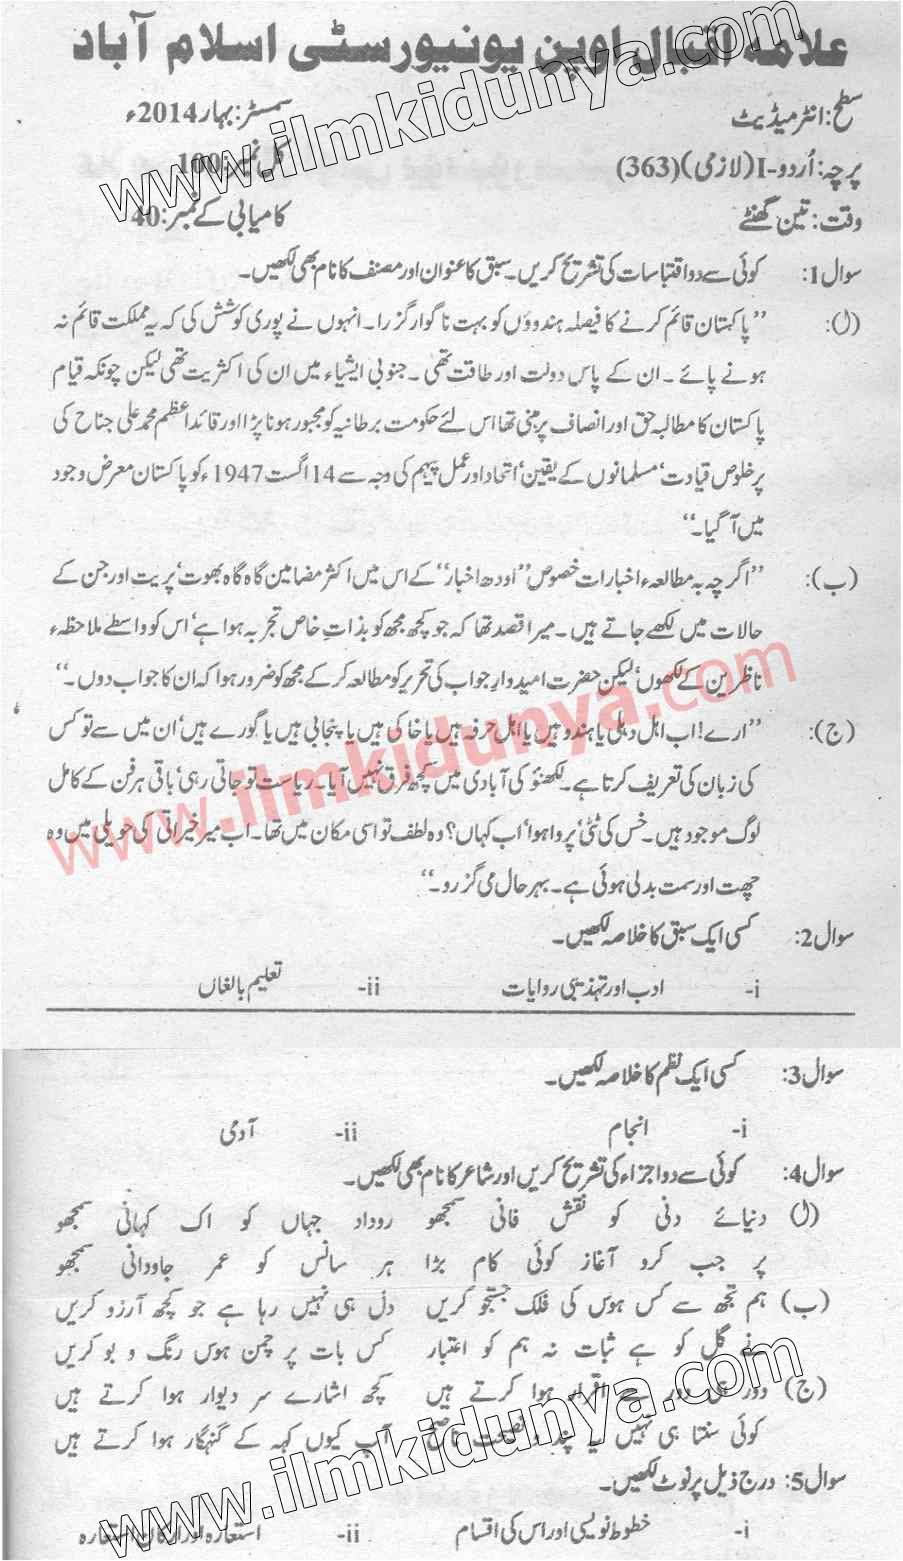 علامہ اقبال اوپن یونیورسٹی اسلام آباد
سطح: انٹرمیڈیٹ سمسٹر: بہار 2014ء
پرچہ: اُردو-I (لازمی) (363) کل نمبر: 100
وقت: تین گھنٹے کامیابی کے نمبر: 40
سوال 1: کوئی سے دو اقتباسات کی تشریح کریں۔ سبق کا عنوان اور مصنف کا نام بھی لکھیں۔
(ا): ”پاکستان قائم کرنے کا فیصلہ ہندوؤں کو بہت ناگوار گزرا۔ انہوں نے پوری کوشش کی کہ یہ مملکت قائم نہ
ہونے پائے۔ ان کے پاس دولت اور طاقت تھی۔ جنوبی ایشیاء میں ان کی اکثریت تھی لیکن چونکہ قیام
پاکستان کا مطالبہ حق اور انصاف پر مبنی تھا اس لئے حکومت برطانیہ کو مجبور ہونا پڑا اور قائداعظم محمد علی جناح کی
پرخلوص قیادت‘ مسلمانوں کے یقین‘ اتحاد اور عمل پیہم کی وجہ سے 14 اگست 1947ء کو پاکستان معرض وجود
میں آ گیا۔“
(ب): ”اگرچہ بہ مطالعہء اخبارات خصوص ”اودھ اخبار“ کے اس میں اکثر مضامین گاہ گاہ بھوت‘ پریت اور جن کے
حالات میں لکھے جاتے ہیں۔ میرا قصد تھا کہ جو کچھ مجھ کو بذاتِ خاص تجربہ ہوا ہے‘ اس کو واسطے ملاحظہء
ناظرین کے لکھوں‘ لیکن حضرت امیدوارِ جواب کی تحریر کو مطالعہ کر کے مجھ کو ضرور ہوا کہ ان کا جواب دوں۔“
(ج): ”ارے! اب اہل دہلی یا ہندو ہیں یا اہل حرفہ ہیں یا خاکی ہیں یا پنجابی ہیں یا گورے ہیں‘ ان میں سے تو کس
کی زبان کی تعریف کرتا ہے۔ لکھنؤ کی آبادی میں کچھ فرق نہیں آیا۔ ریاست تو جاتی رہی‘ باقی ہر فن کے کامل
لوگ موجود ہیں۔ خس کی ٹٹی‘ پروا ہوا‘ اب کہاں؟ وہ لطف تو اسی مکان میں تھا۔ اب میر خیراتی کی حویلی میں وہ
چھت اور سمت بدلی ہوئی ہے۔ بہرحال می گزرد۔“
سوال 2: کسی ایک سبق کا خلاصہ لکھیں۔
i- ادب اور تہذیبی روایات ii- تعلیم بالغاں
سوال 3: کسی ایک نظم کا خلاصہ لکھیں۔
i- انجام ii- آدمی
سوال 4: کوئی سے دو اجزاء کی تشریح کریں اور شاعر کا نام بھی لکھیں۔
(ا) دنیائے دنی کو نقش فانی سمجھو روداد جہاں کو اک کہانی سمجھو
پر جب کرو آغاز کوئی کام بڑا ہر سانس کو عمر جاودانی سمجھو
(ب) ہم تجھ سے کس ہوس کی فلک جستجو کریں دل ہی نہیں رہا ہے جو کچھ آرزو کریں
نے گل کو ہے ثبات نہ ہم کو اعتبار کس بات پر چمن ہوس رنگ و بو کریں
(ج) دور ہی دور سے اقرار ہوا کرتے ہیں کچھ اشارے سر دیوار ہوا کرتے ہیں
کوئی سنتا ہی نہیں پند و نصیحت ناصح آپ کیوں کہہ کے گنہگار ہوا کرتے ہیں
سوال 5: درج ذیل پر نوٹ لکھیں۔
i- خطوط نویسی اور اس کی اقسام ii- استعارہ اور ارکان استعارہ
www.ilmkidunya.com
www.ilmkidunya.com
www.ilmkidunya.com